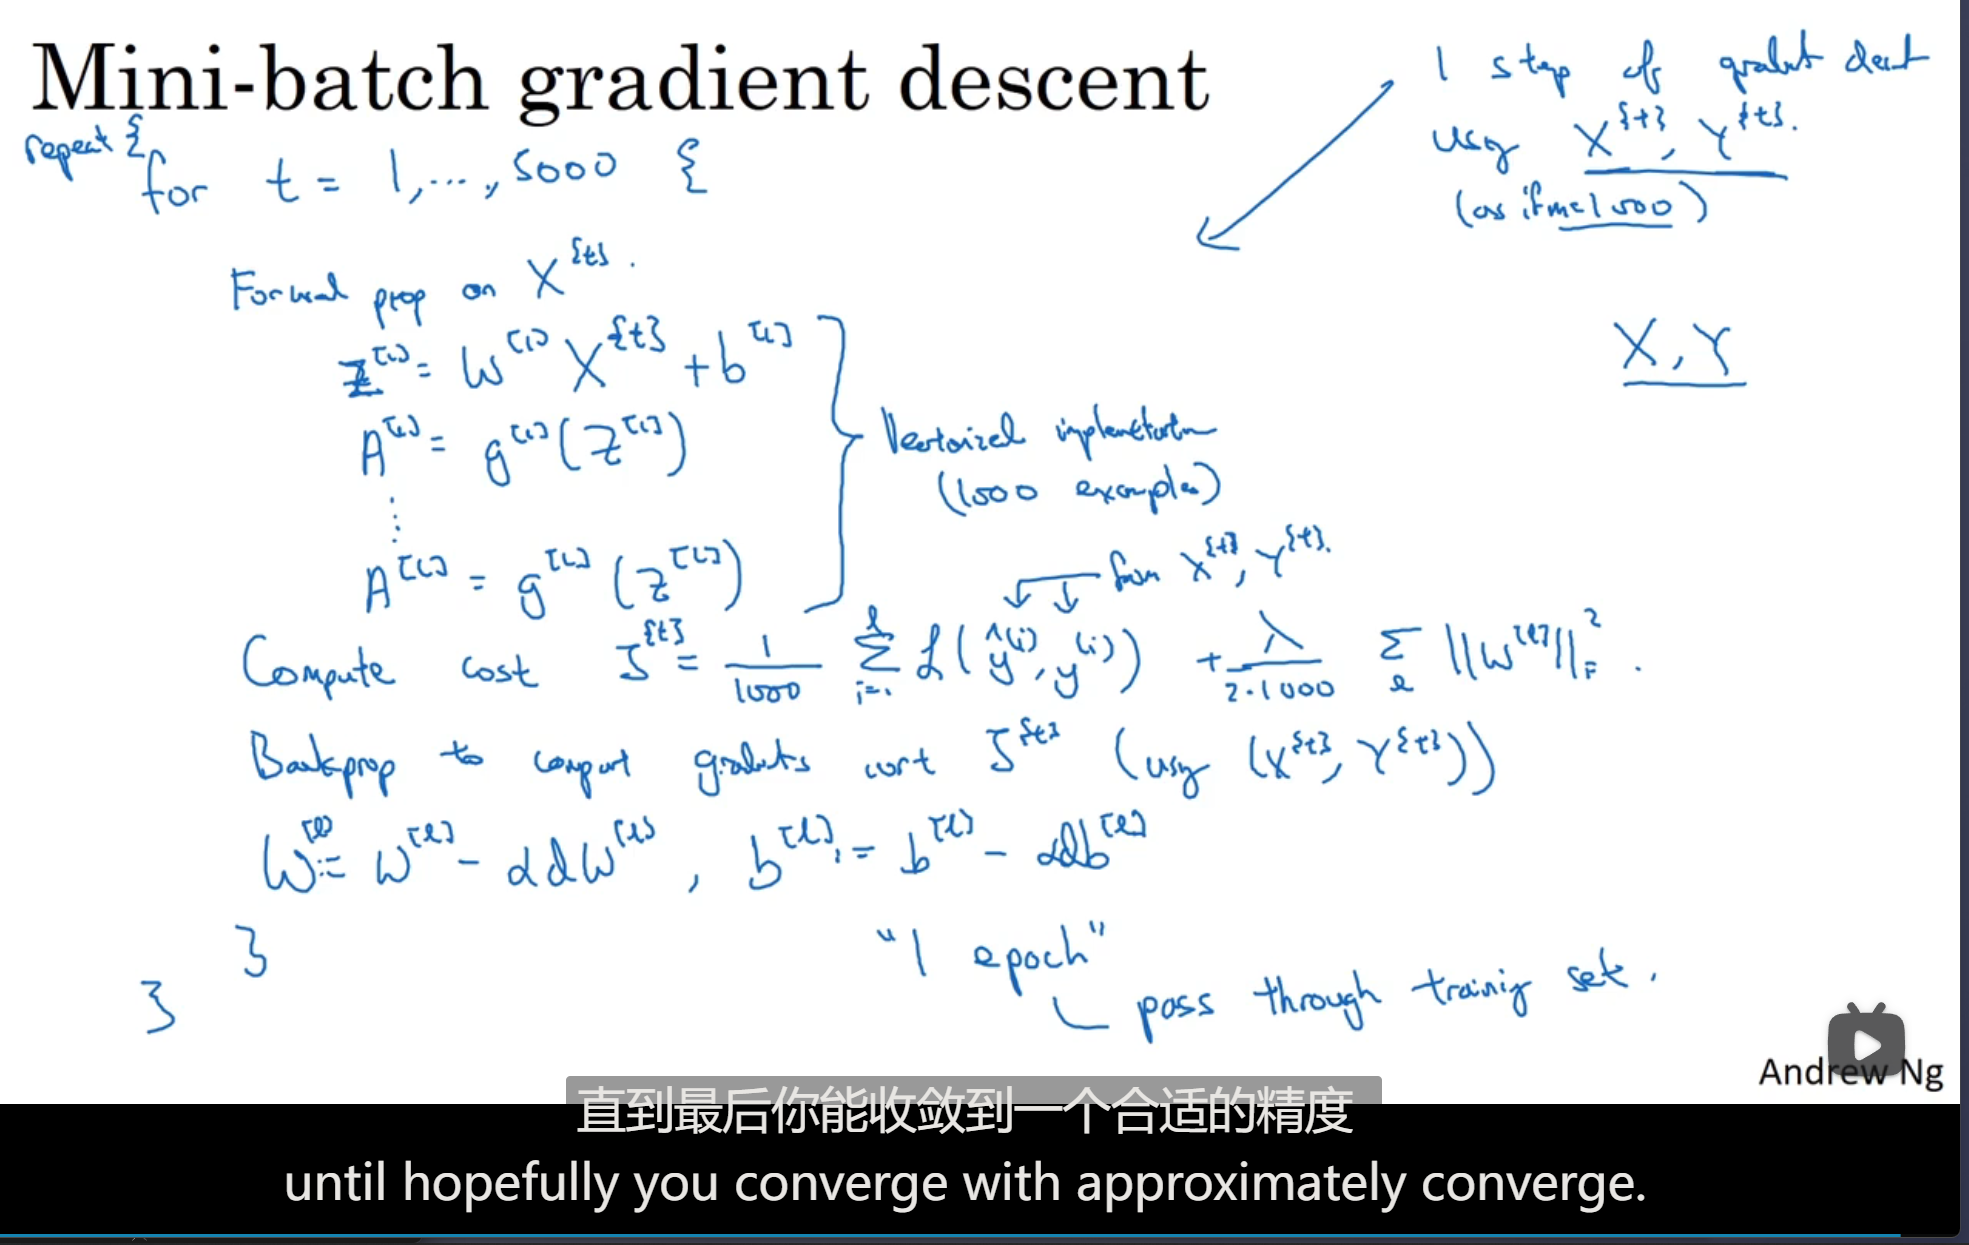 Mini-batch gradient descent
1 step of gradient descent
using X^{t}, Y^{t}.
(as if m=1000)
repeat {
for t = 1,..., 5000 {
X, Y
Forward prop on X^{t}.
Z^[1] = W^[1] X^{t} + b^[1]
A^[1] = g^[1](Z^[1])
⋮
A^[L] = g^[L](Z^[L])
Vectorized implementation
(1000 examples)
from X^{t}, Y^{t}.
Compute cost J^{t} = 1/1000 Σ_{i=1}^{l} L(ŷ^(i), y^(i)) + λ/2·1000 Σ_l ||W^[l]||_F^2.
Backprop to compute gradients wrt J^{t} (using (X^{t}, Y^{t}))
W^[l] := W^[l] - αdW^[l], b^[l] := b^[l] - αdb^[l]
}
}
"1 epoch"
pass through training set.
Andrew Ng
直到最后你能收敛到一个合适的精度
until hopefully you converge with approximately converge.